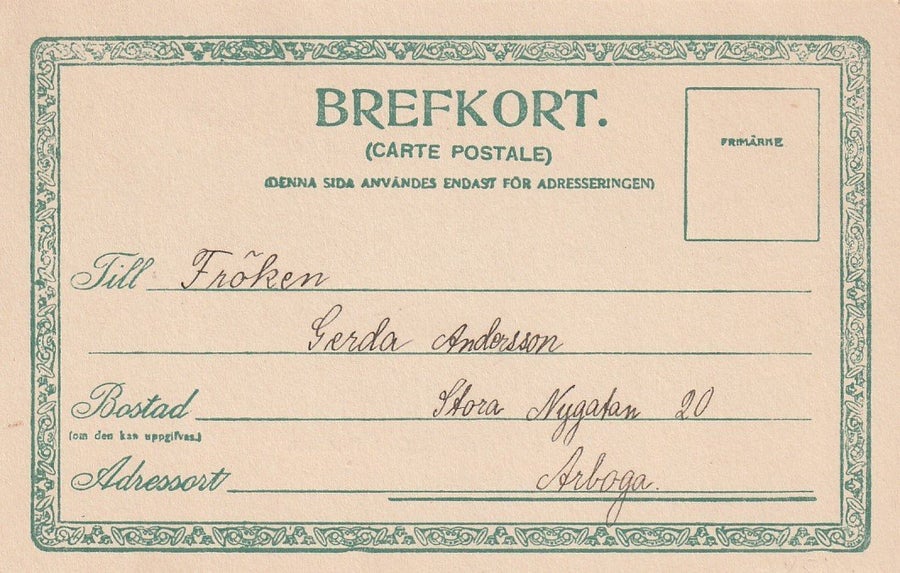 BREFKORT.
(CARTE POSTALE)
(DENNA SIDA ANVÄNDES ENDAST FÖR ADRESSERINGEN)
FRIMÄRKE
Till Fröken
Gerda Andersson
Bostad Stora Nygatan 20
(om den kan uppgifvas.)
Adressort Arboga.